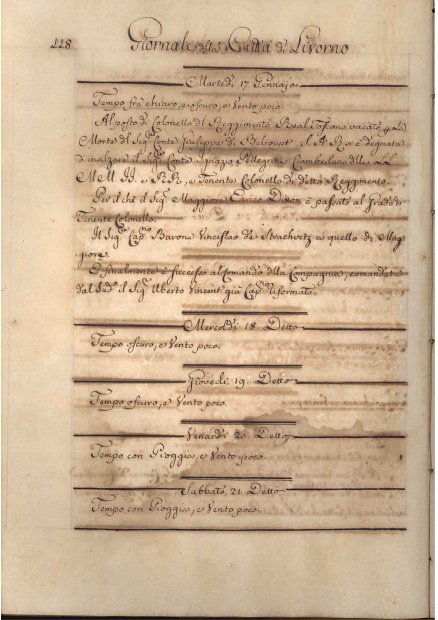 118 Giornale della Città di Livorno
Martedì 17 Gennajo
Tempo frà chiaro, e oscuro, e Vento poco.
Al posto di Colonello di Reggimento Real Toscano vacato p la
Morte del Sigr Conte Giuseppe di S. A. R. si è degnata
d'inalzare il Sigr Conte Ignazio Pellegrini Ciamberlano delle LL.
MM. II. e RR., e Tenente Colonello di detto Reggimento.
Per il chè il Sigr Maggiore Enrico è passato al Grado di
Tenente Colonello.
Il Sigr Capno Barone Vincislao de Strachvitz a quello di Mag
giore.
E finalmente è successo al Comando della Compagnia, comandata
dal Sudo il Sigr Uberto Vincent già Capno Riformato.
Mercoldì 18 Detto
Tempo oscuro, e Vento poco.
Giovedì 19. Detto
Tempo oscuro, e Vento poco.
Venardì 20 Detto
Tempo con Pioggia, e Vento poco.
Sabbato 21 Detto
Tempo con Pioggia, e Vento poco.